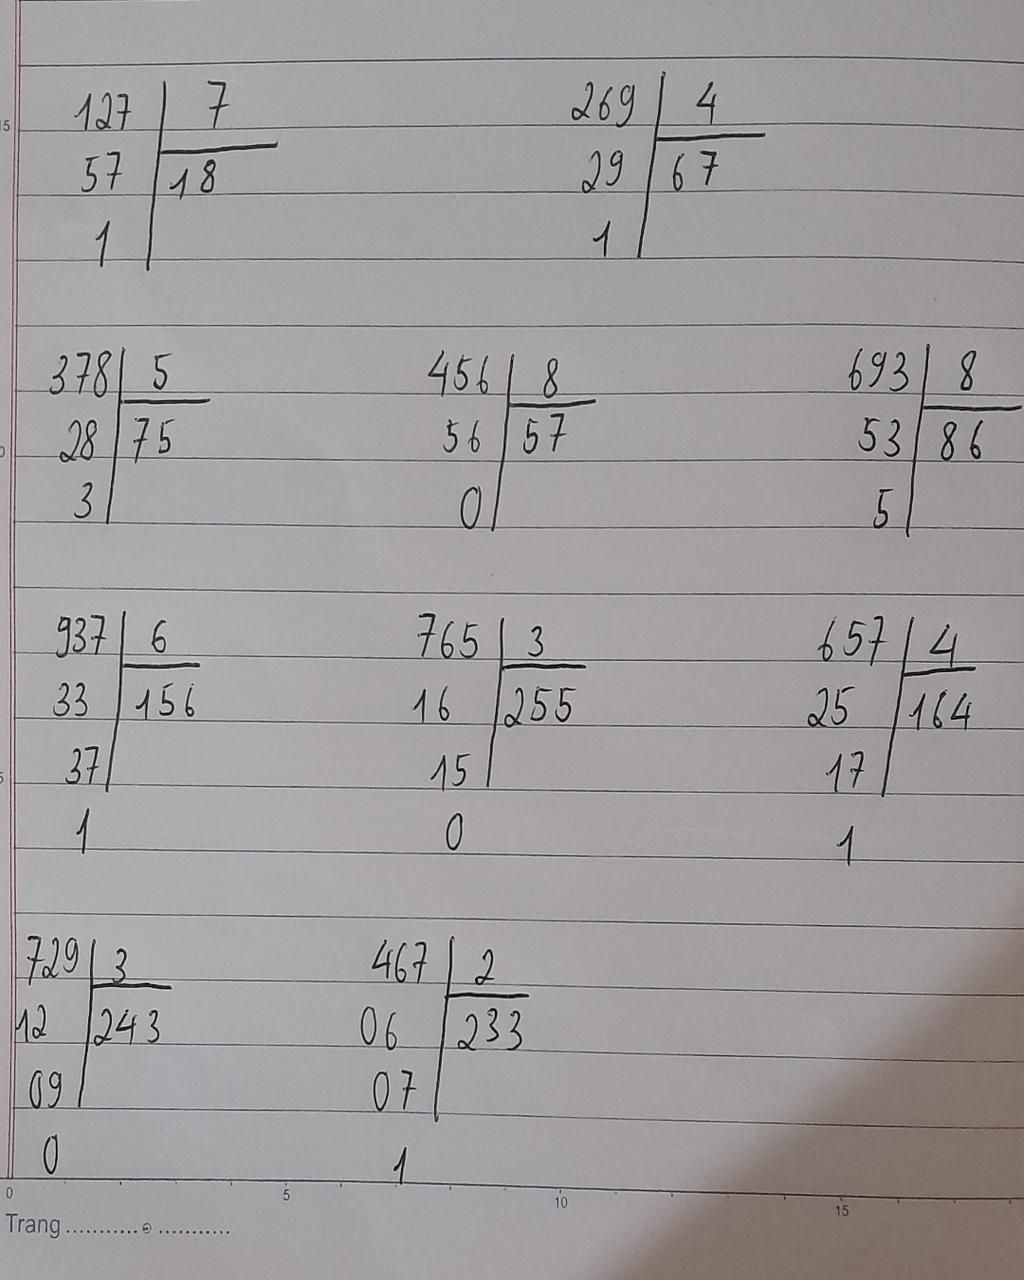 127 7 269 4
57 18 29 67
1 1
378 5 456 8 693 8
28 75 56 57 53 86
3 0 5
937 6 765 3 657 4
33 156 16 255 25 164
37 15 17
1 0 1
729 3 467 2
12 243 06 233
09 07
0 1
0 5 10 15
Trang